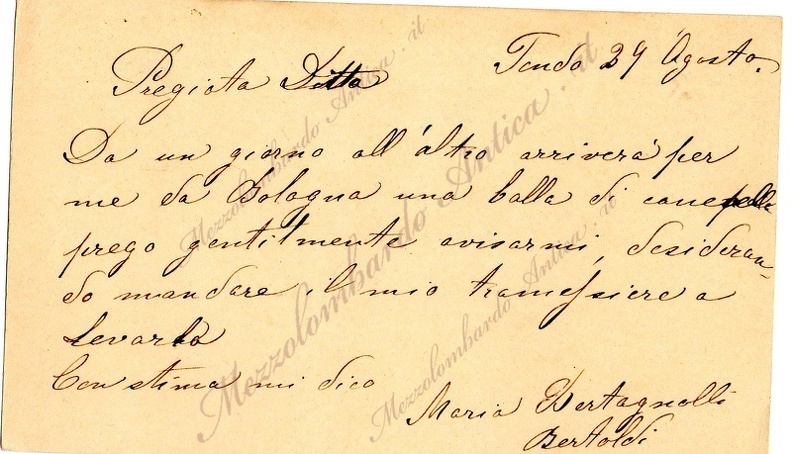 Pregiata Ditta
Fondo 29 Agosto.
Da un giorno all'altro arriverà per
me da Bologna una balla di canepella
prego gentilmente avisarmi, desideran-
do mandare il mio tramessiere a
levarla
Con stima mi dico
Maria Bertagnolli
Bertoldi
Mezzolombardo Antica.it
Mezzolombardo Antica.it
Mezzolombardo Antica.it